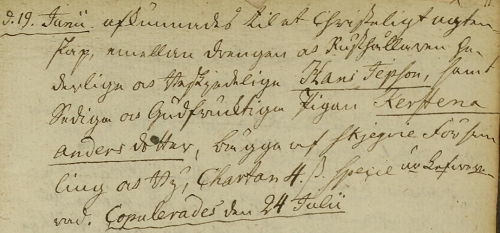 d. 19. Junii afkunnades til et Christeligt ägten-
skap, emellan drengen och Rusthållaren he-
derlige och beskjedelige Hans Jepson, samt
Sediga och Gudfruktiga Pigan Kerstena
Anders dotter, begge af Skjegrie Försam
ling och By, Chartan 4. s. specie är lefwere-
rad. Copulerades den 24 Julii